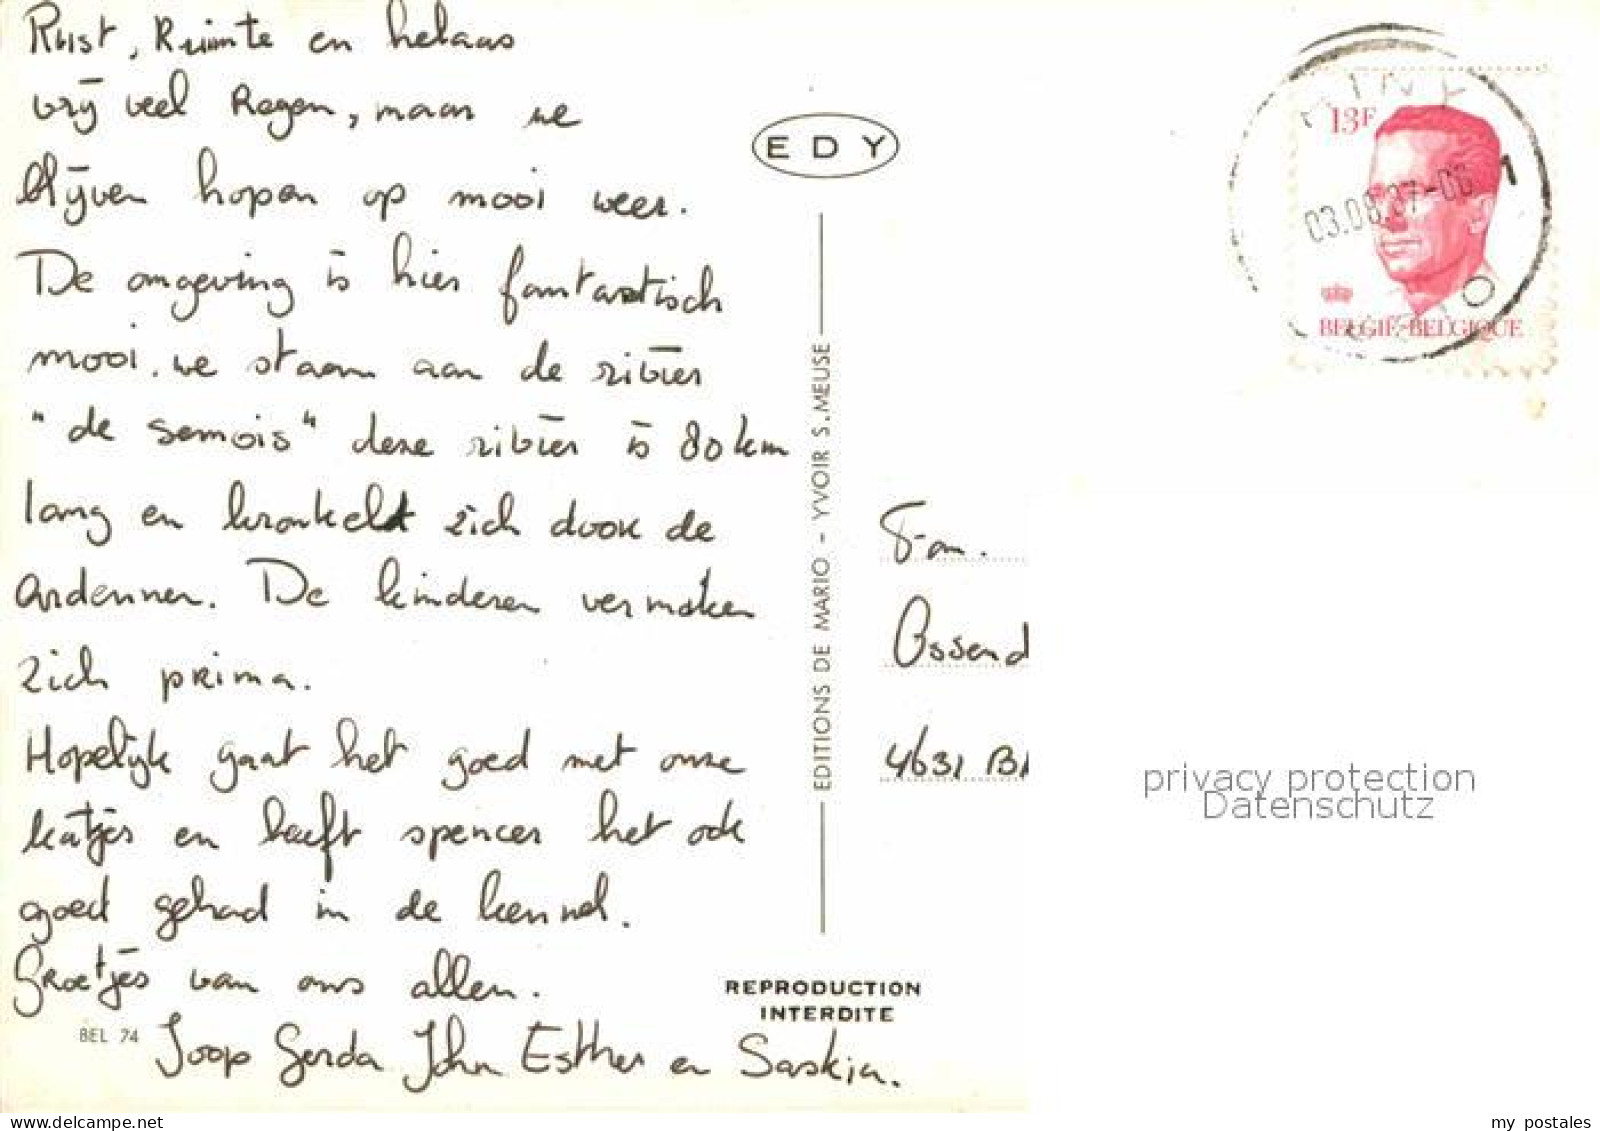 Rust, Ruimte en helaas
vrij veel Regen, maar we
blijven hopen op mooi weer.
De omgeving is hier fantastisch
mooi. we staan aan de rivier
"de semois" deze rivier is 80 km
lang en kronkelt zich door de
Ardennen. De kinderen vermaken
zich prima.
Hopelijk gaat het goed met onze
katjes en heeft spencer het ook
goed gehad in de kennel.
Groetjes van ons allen.
Joop Gerda John Esther en Saskia.
BEL 74
EDY
EDITIONS DE MARIO - YVOIR S. MEUSE
REPRODUCTION
INTERDITE
13F
03.08.87
1
BELGIË-BELGIQUE
Fam.
Ossend
4631
privacy protection
Datenschutz
www.delcampe.net
my postales